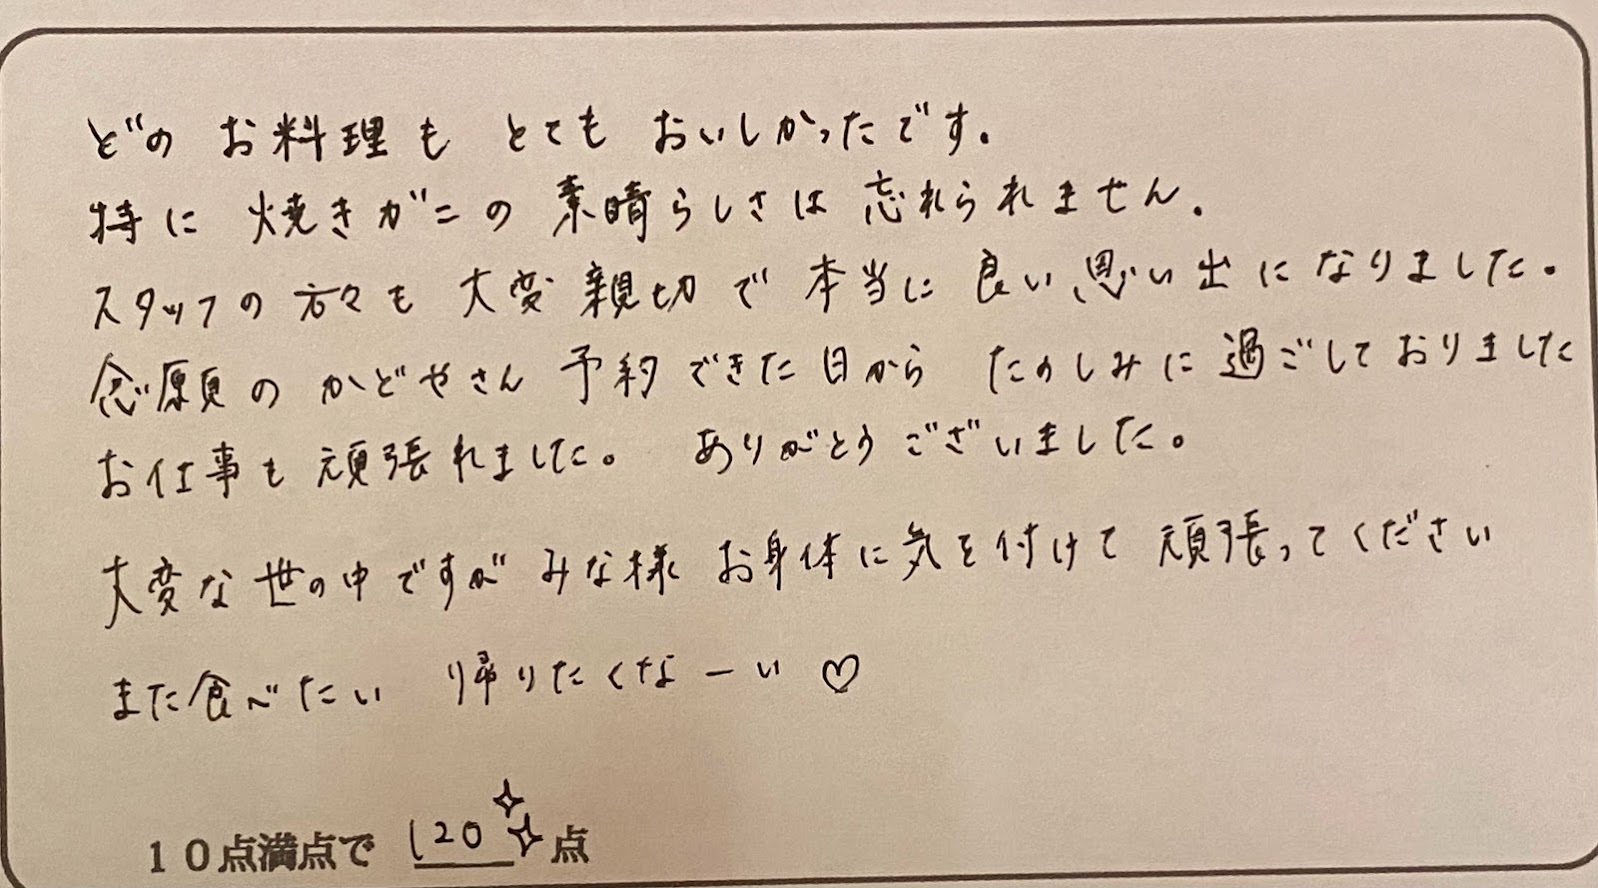 どのお料理も とても おいしかったです.
特に 焼きガニの 素晴らしさは 忘れられません.
スタッフの 方々も 大変 親切で 本当に 良い 思い出に なりました。
念願の かどやさん 予約できた日から たのしみに 過ごしておりました
お仕事も 頑張れました。 ありがとうございました。
大変な世の中ですが みな様 お身体に気を付けて 頑張ってください
また食べたい 帰りたくなーい ♡
10点満点で 120 点